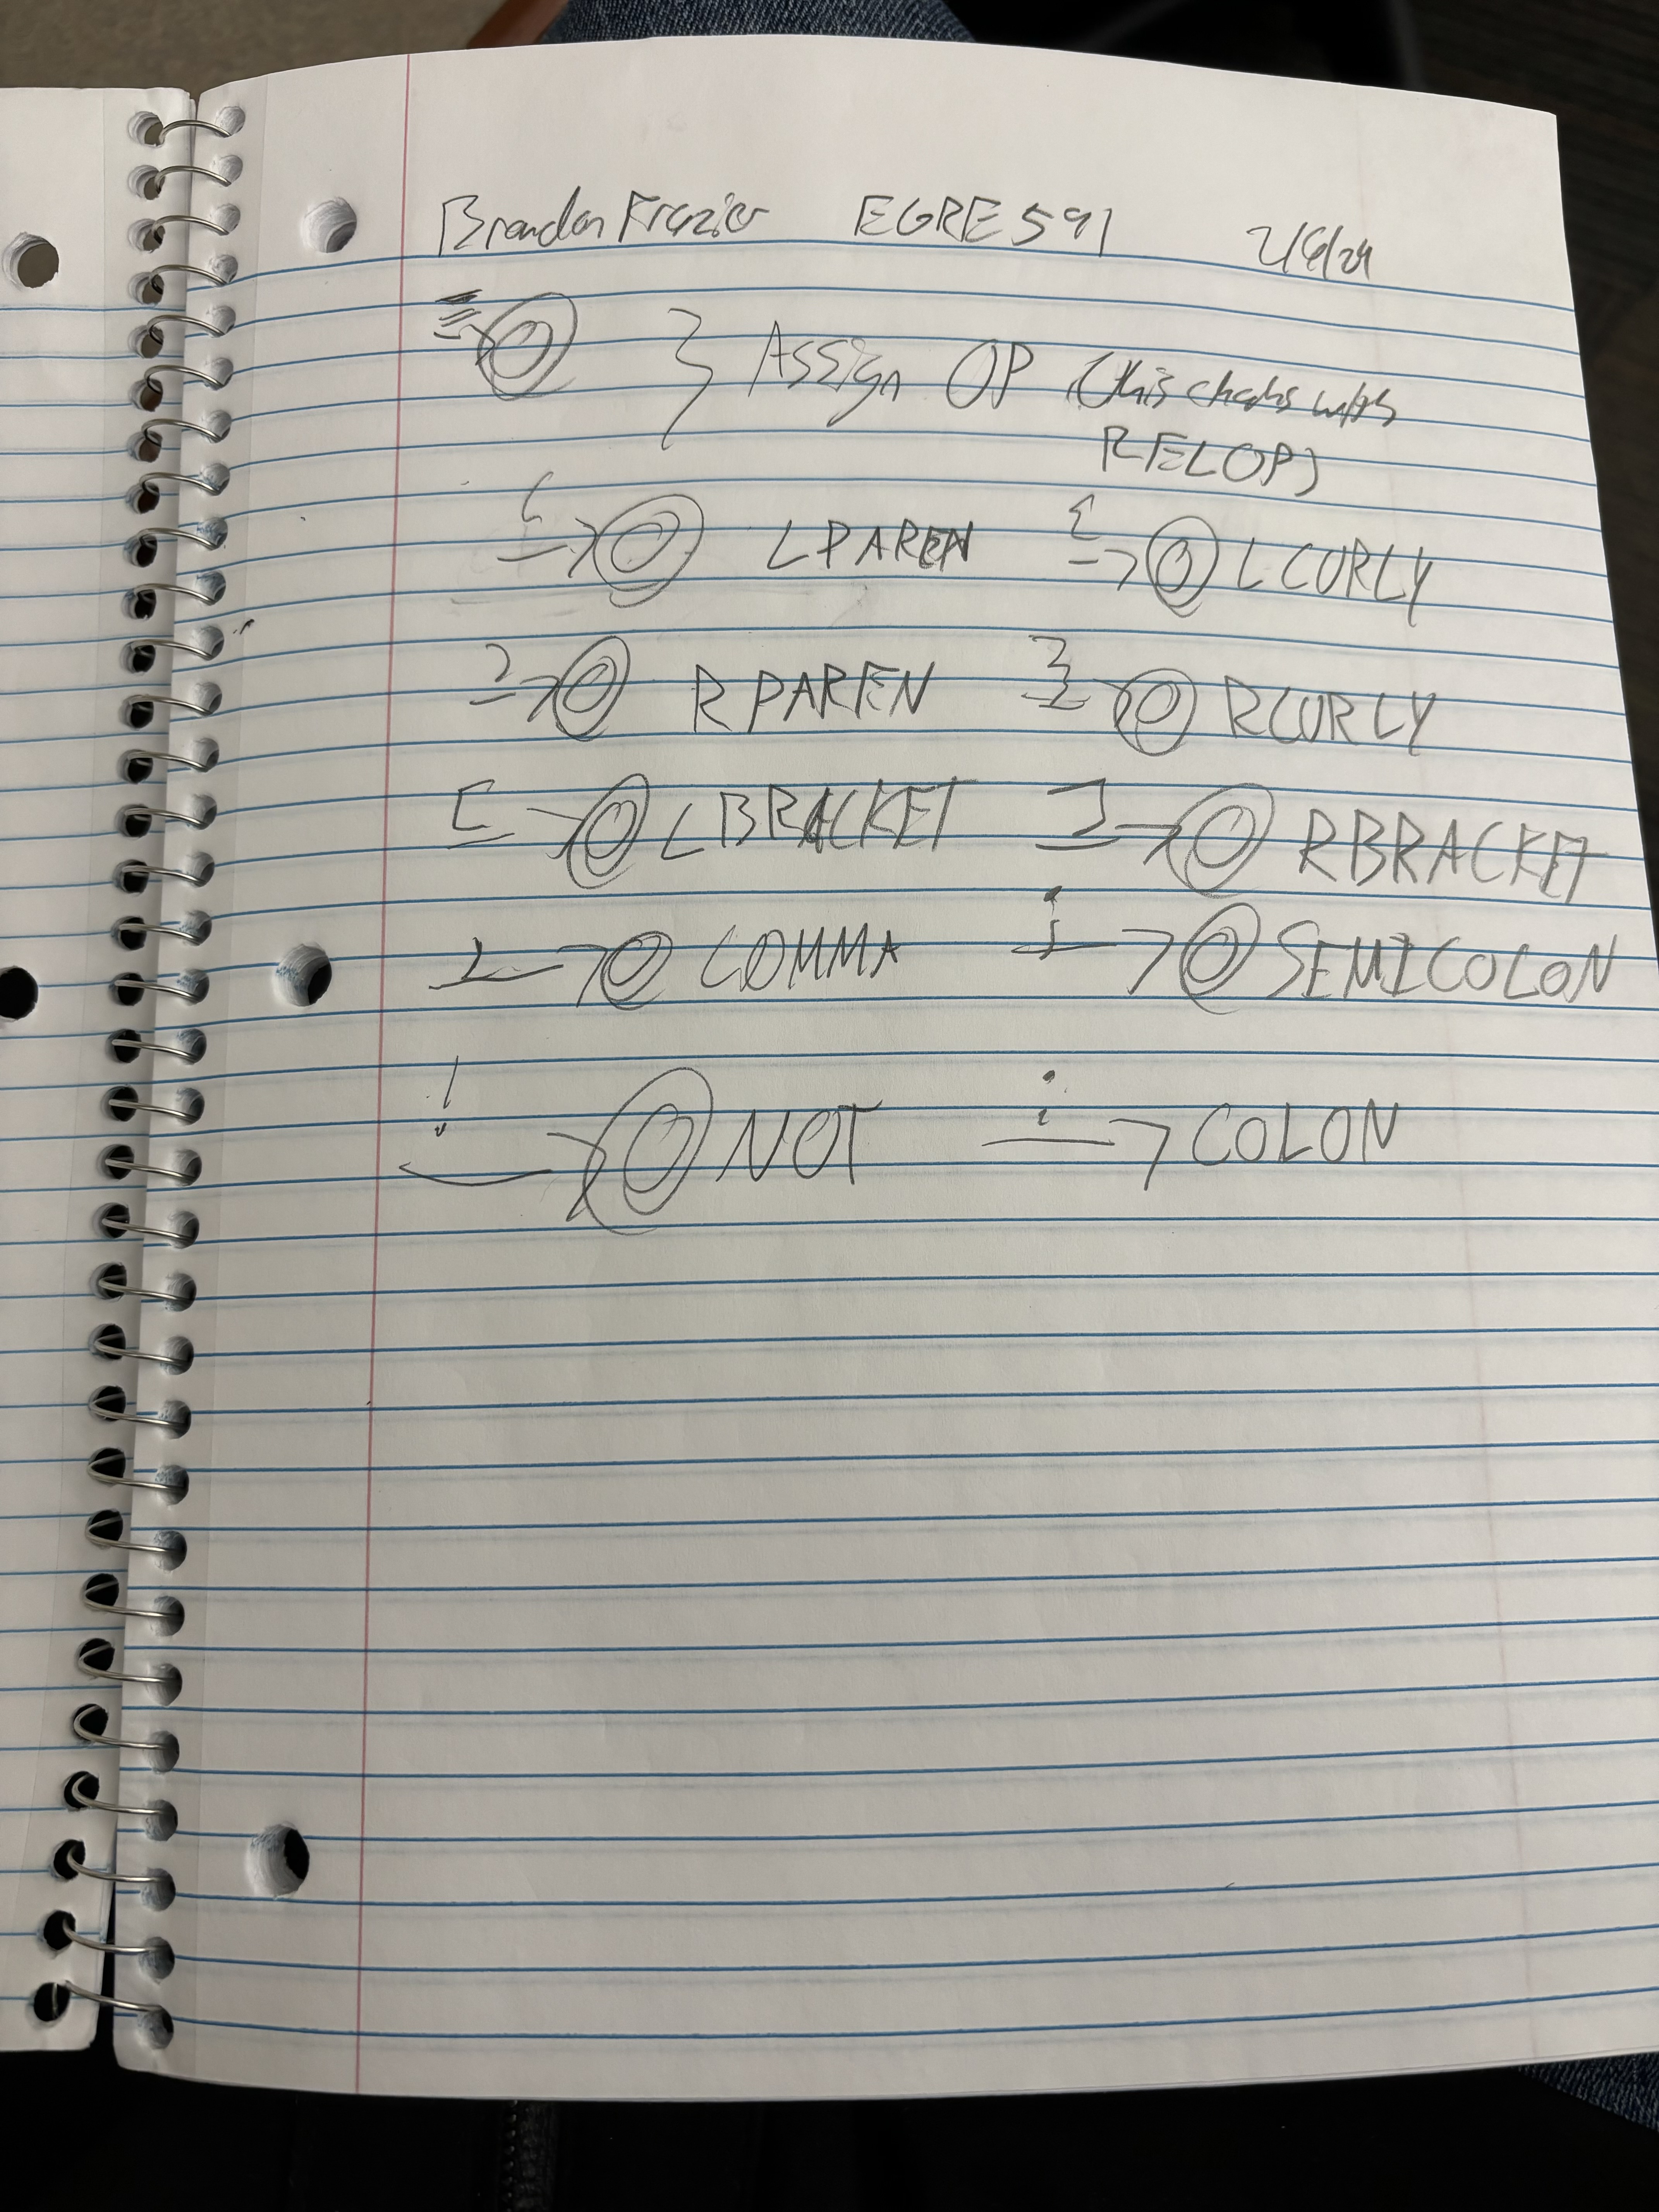 Brandon Frazier EGRE 591 2/6/24
= } Assign OP (this checks with
RELOP)
( LPAREN { LCURLY
) RPAREN } RCURLY
[ LBRACKET ] RBRACKET
, COMMA ; SEMICOLON
! NOT : COLON